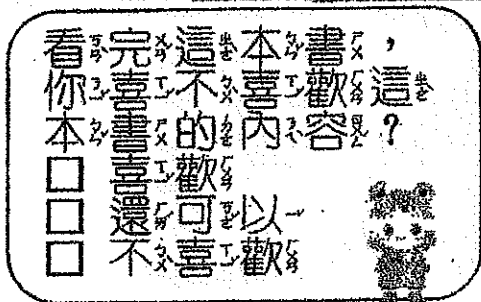 看完這本書，
你喜不喜歡這
本書的內容？
□ 喜歡
□ 還可以
□ 不喜歡